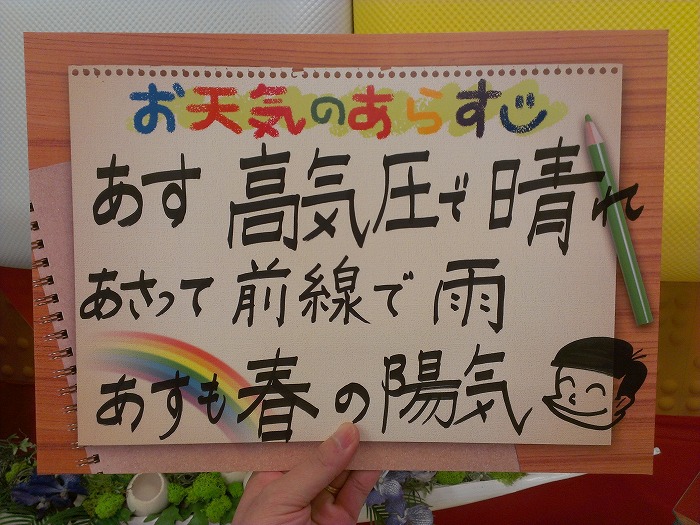 お天気のあらすじ
あす 高気圧で晴れ
あさって 前線で 雨
あすも春の陽気